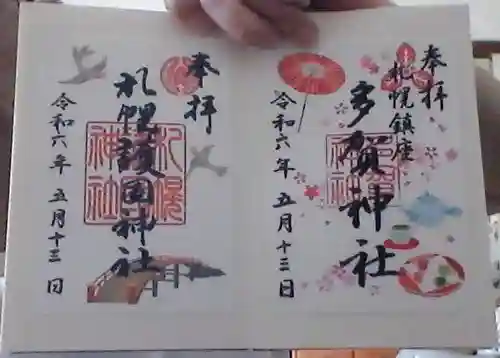 奉拝
札幌鎮座
多賀神社
令和六年 五月十三日
奉拝
札幌護国神社
札幌
神社
令和六年 五月十三日